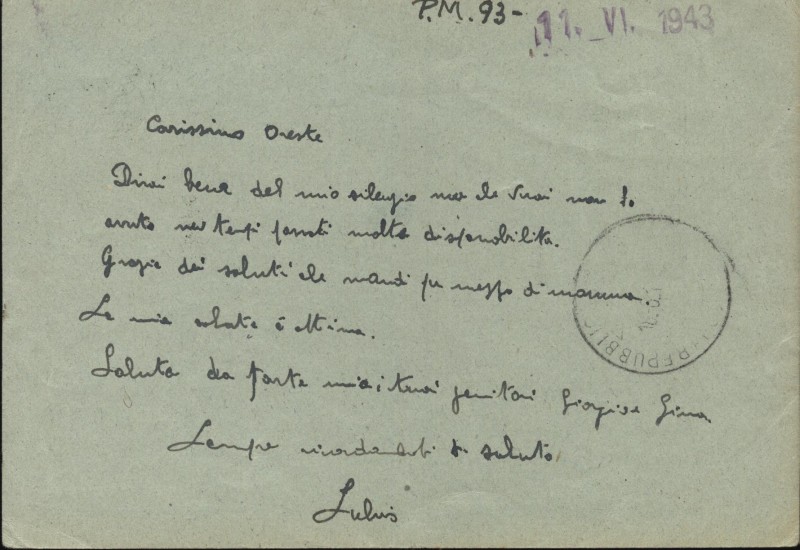 P.M. 93-
11. VI. 1943
Carissimo Oreste
Dirai bene del mio silenzio ma che vuoi non ho
avuto nei tempi passati molta disponobilità.
Grazie dei saluti che mandi per mezzo di mamma.
La mia salute è ottima.
Saluta da parte mia i tuoi genitori Giorgio e Gina
Sempre ricordandoti ti saluto
REPUBBLIC